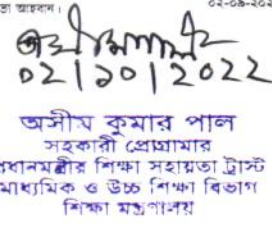 তা আহবান।
02/10/2022
অসীম কুমার পাল
সহকারী প্রোগ্রামার
প্রধানমন্ত্রীর শিক্ষা সহায়তা ট্রাস্ট
মাধ্যমিক ও উচ্চ শিক্ষা বিভাগ
শিক্ষা মন্ত্রণালয়